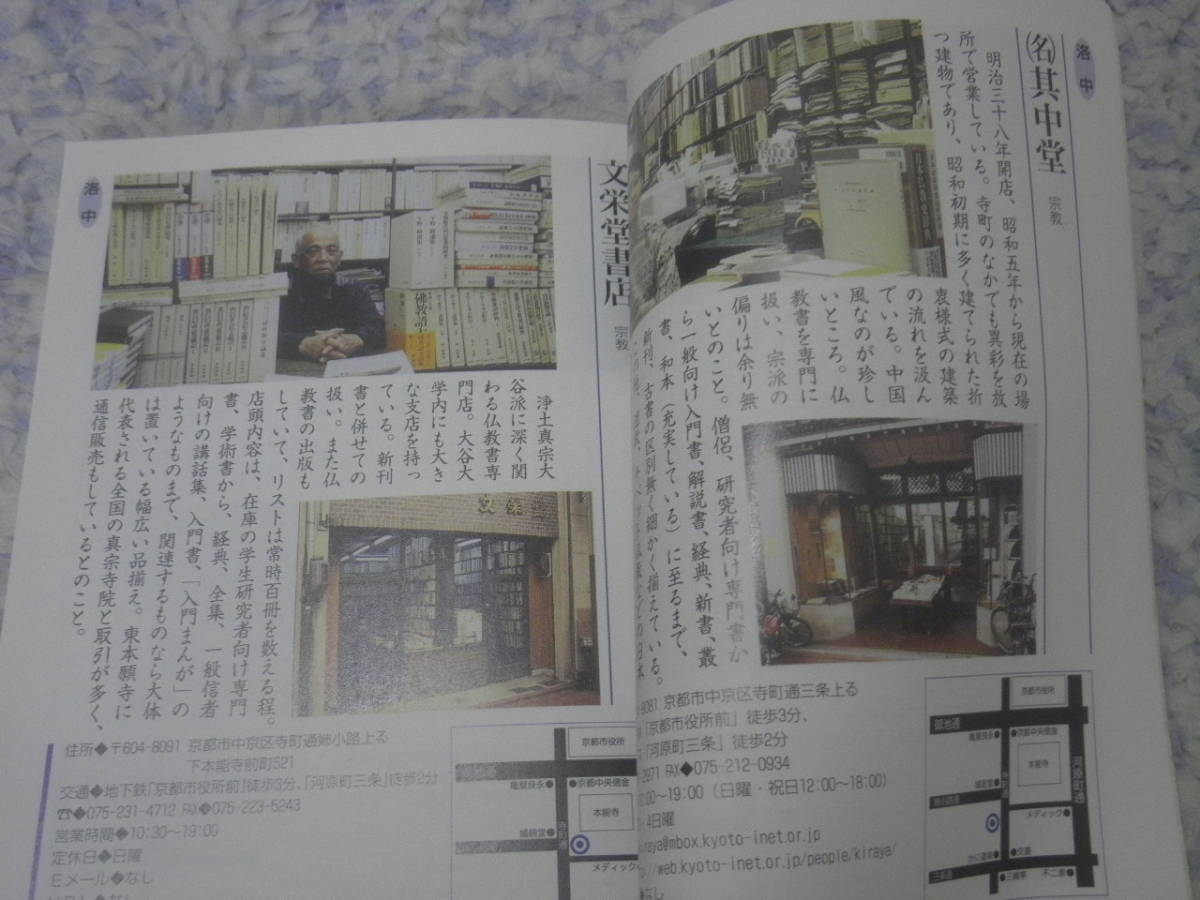 洛中
㈴其中堂 宗教
明治三十八年開店、昭和五年から現在の場
所で営業している。寺町のなかでも異彩を放
つ建物であり、昭和初期に多く建てられた折
衷様式の建築
の流れを汲ん
でいる。中国
風なのが珍し
いところ。仏
教書を専門に
扱い、宗派の
偏りは余り無
いとのこと。僧侶、研究者向け専門書か
ら一般向け入門書、解説書、経典、新書、叢
書、和本(充実している)に至るまで、
新刊、古書の区別無く細かく揃えている。
8081 京都市中京区寺町通三条上る
「京都市役所前」徒歩3分、
「河原町三条」徒歩2分
2971 FAX◆075-212-0934
0:00〜19:00(日曜・祝日12:00〜18:00)
4日曜
kiraya@mbox.kyoto-inet.or.jp
//web.kyoto-inet.or.jp/people/kiraya/
◆なし
京都市役所
御池通
亀屋良永●
●京都中央信金
本能寺
鳩居堂●
姉小路通
河原町通
メディック●
かに道楽●
●交番
三条通
●三嶋亭
不二家●
洛中
文栄堂書店 宗教
文栄
佛教語
浄土真宗大
谷派に深く関
わる仏教書専
門店。大谷大
学内にも大き
な支店を持っ
ている。新刊
書と併せての
扱い。また仏
教書の出版も
していて、リストは常時百冊を数える程。
店頭内容は、在庫の学生研究者向け専門
書、学術書から、経典、全集、一般信者
向けの講話集、入門書、「入門まんが」の
ようなものまで、関連するものなら大体
は置いている幅広い品揃え。東本願寺に
代表される全国の真宗寺院と取引が多く、
通信販売もしているとのこと。
住所◆〒604-8091 京都市中京区寺町通姉小路上る
下本能寺前町521
交通◆地下鉄「京都市役所前」徒歩2分、「河原町三条」徒歩2分
☎◆075-231-4712 FAX◆075-223-5243
営業時間◆10:30〜19:00
定休日◆日曜
Eメール◆なし
京都市役所
亀屋良永●
●京都中央信金
本能寺
鳩居堂●
寺町通
メディック